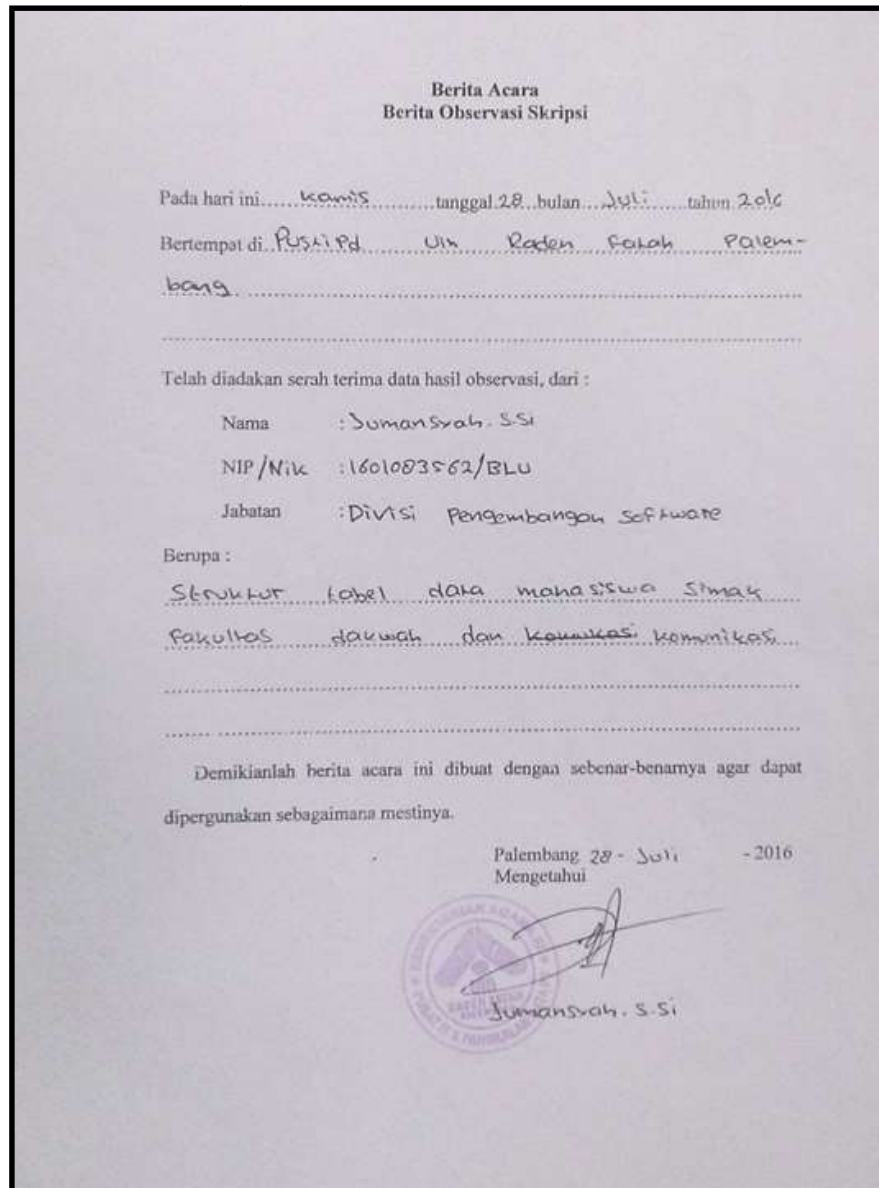 Berita Acara
Berita Observasi Skripsi
Pada hari ini.....Kamis............tanggal.28..bulan....Juli......tahun.2016
Bertempat di..PustiPd UIN Raden Fatah Palem-
bang
Telah diadakan serah terima data hasil observasi, dari :
Nama : Jumansyah. S.Si
NIP/Nik : 1601083562/BLU
Jabatan : Divisi Pengembangan Software
Berupa :
Struktur tabel data mahasiswa Simak
Fakultas dakwah dan komunikasi
Demikianlah berita acara ini dibuat dengan sebenar-benarnya agar dapat
dipergunakan sebagaimana mestinya.
Palembang 28 - Juli - 2016
Mengetahui
Jumansyah. S.Si